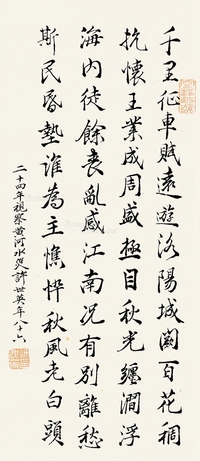 千里征車賦遠遊洛陽城闕百花稠
抗懷王業成周盛極目秋光纏澗浮
海內徒餘喪亂感江南況有別離愁
斯民昏墊誰為主憔悴秋風老白頭
二十四年視察黃河水災許世英年八十六